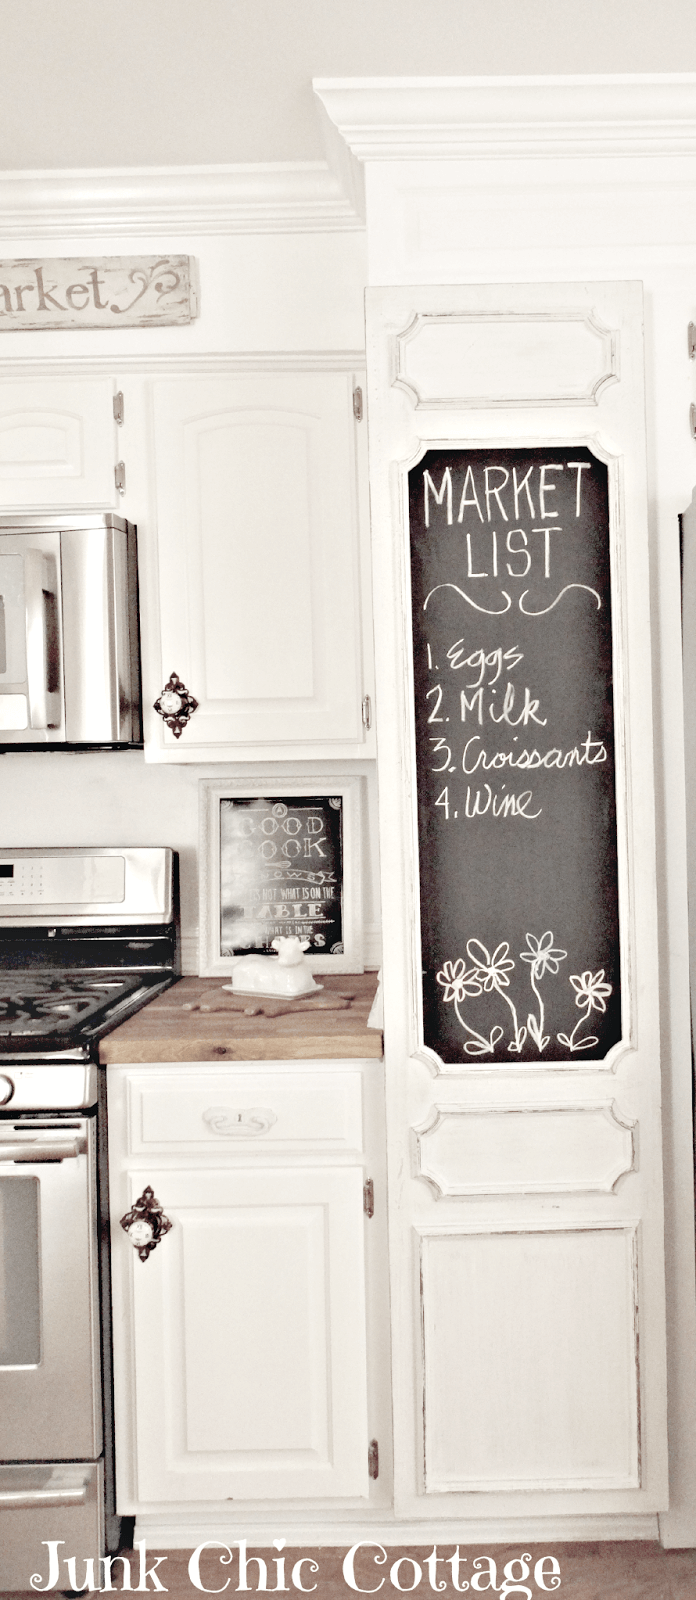 arket
MARKET
LIST
1. Eggs
2. Milk
3. Croissants
4. Wine
A
GOOD
COOK
KNOWS
IT'S NOT WHAT IS ON THE
TABLE
WHAT IS IN THE
1
Junk Chic Cottage